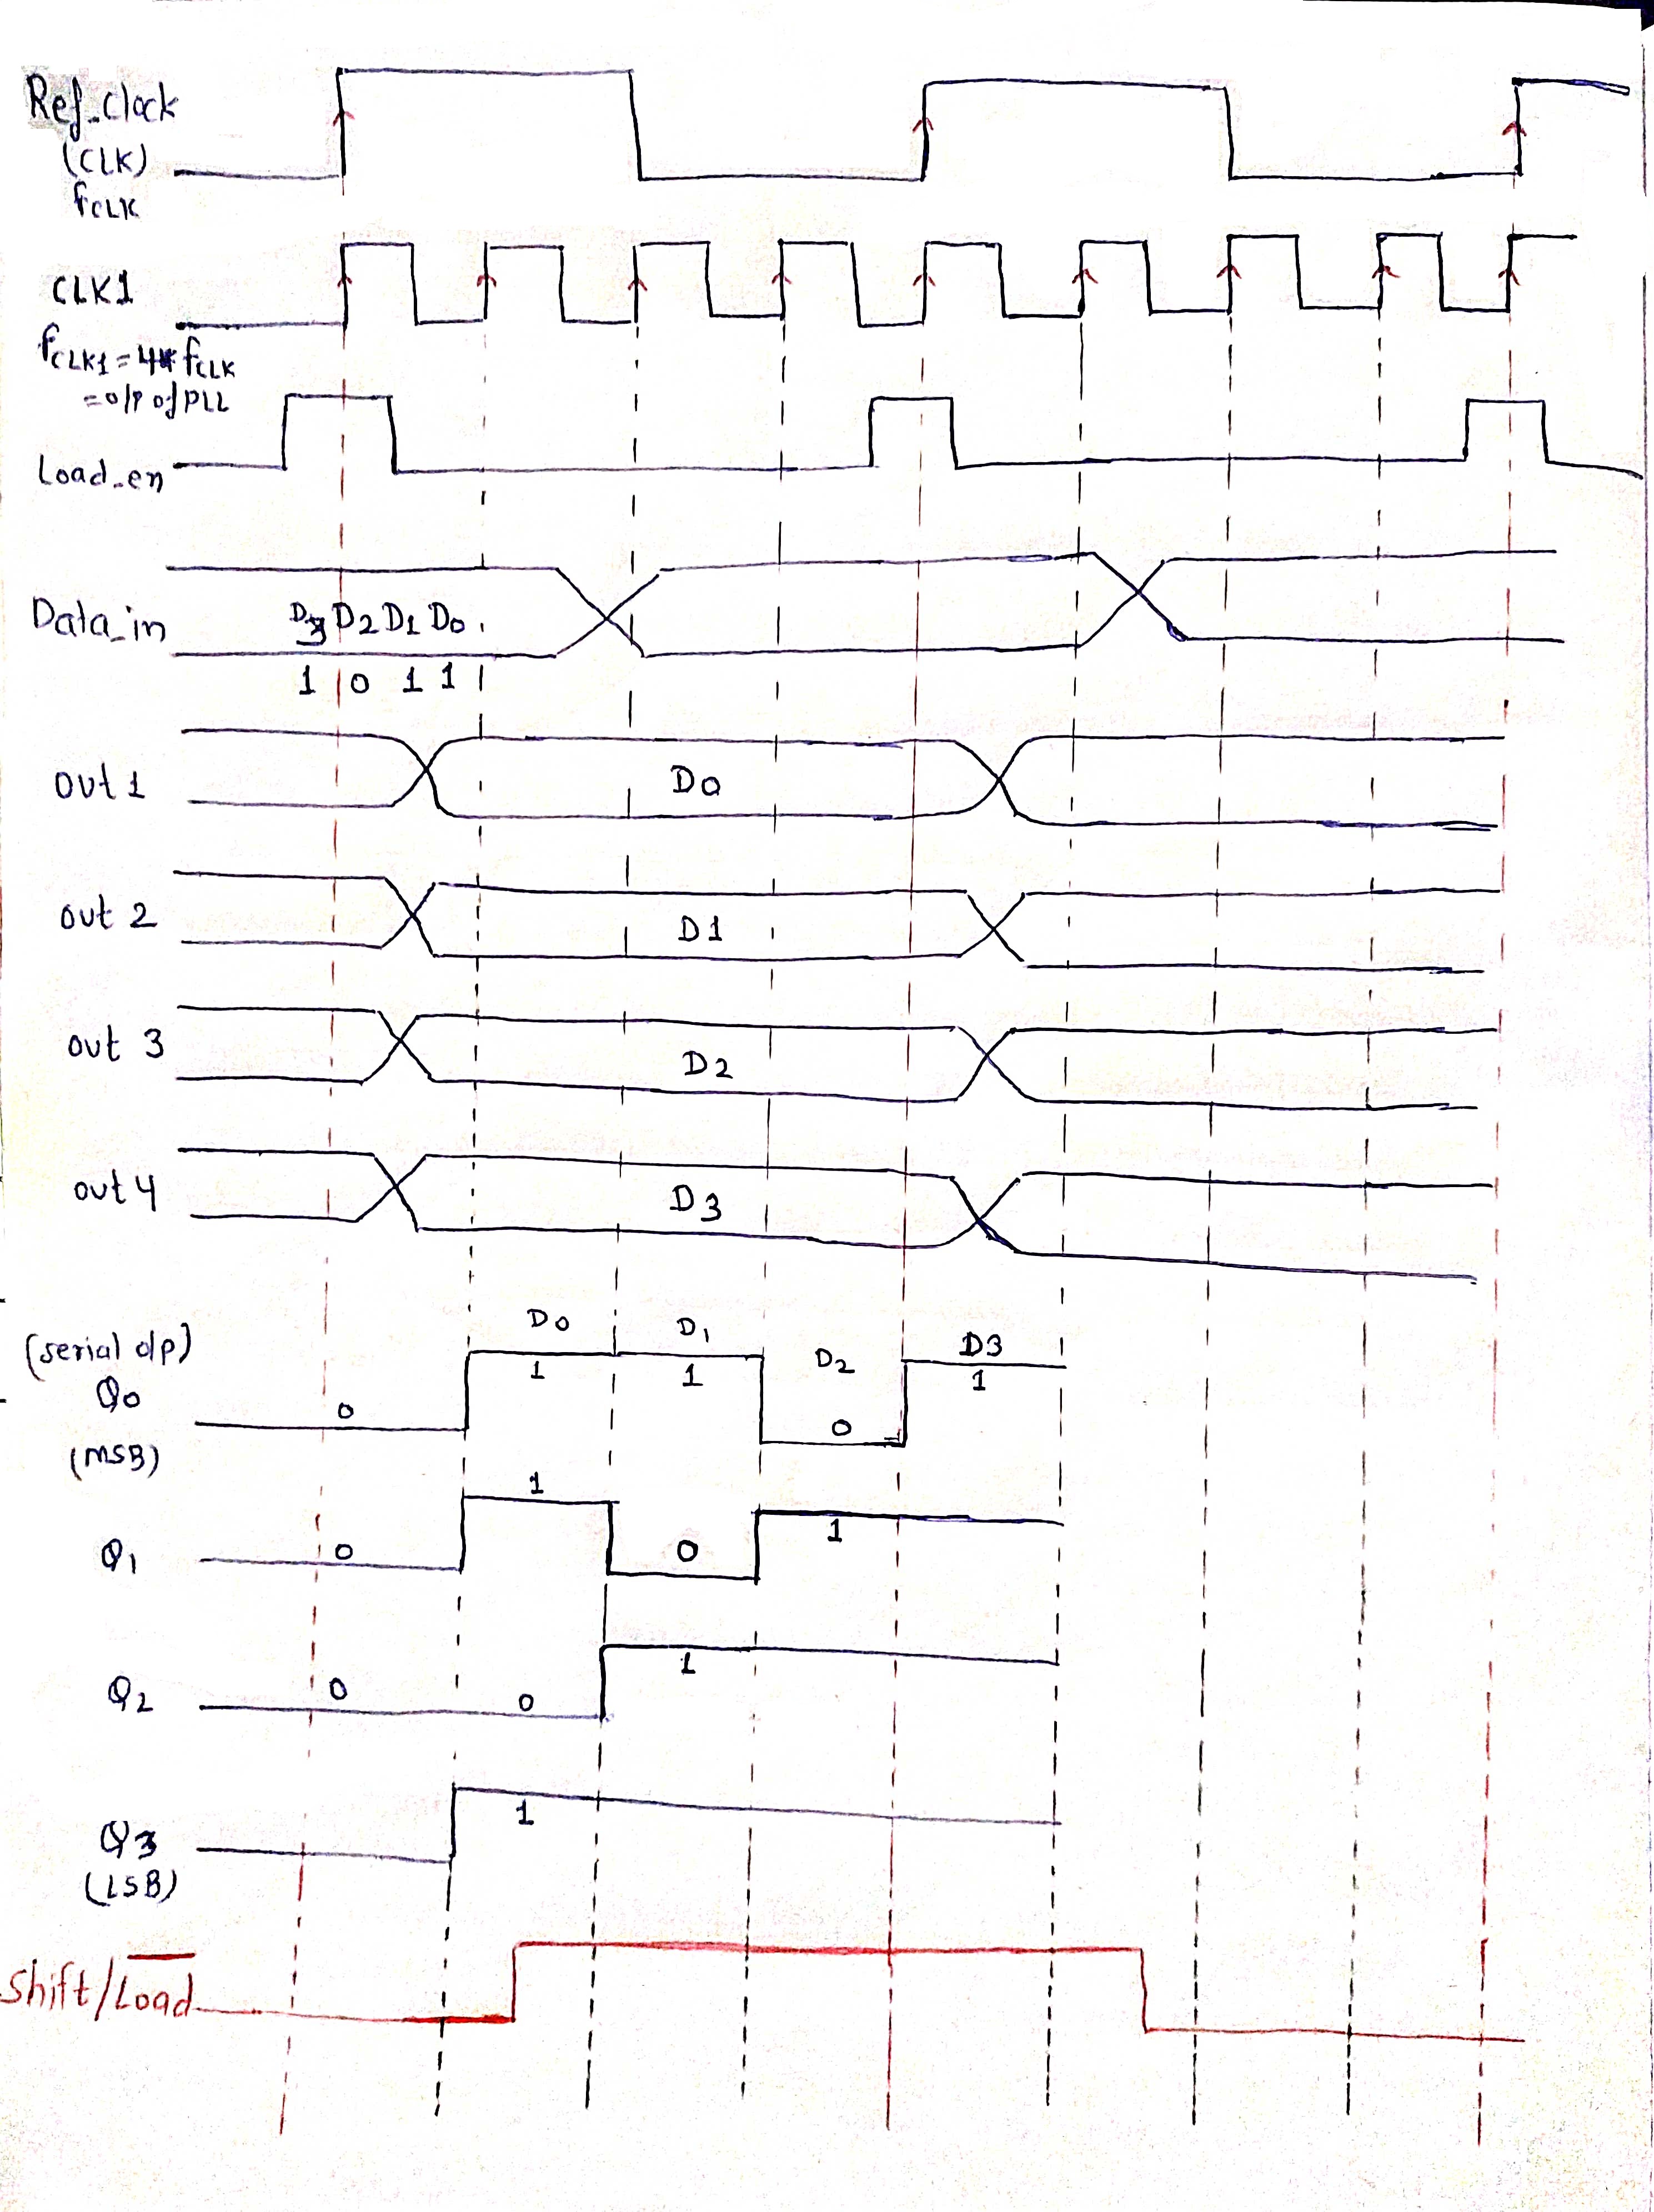 Ref_Clock
(CLK)
fCLK
CLK1
fCLK1 = 4* fCLK
= o/p of PLL
Load_en
Data_in
D3 D2 D1 D0
1 0 1 1
out 1
D0
out 2
D1
out 3
D2
out 4
D3
(serial o/p)
Q0
(MSB)
0
D0
1
D1
1
D2
0
D3
1
Q1
0
1
0
1
Q2
0
0
1
Q3
(LSB)
1
Shift/Load